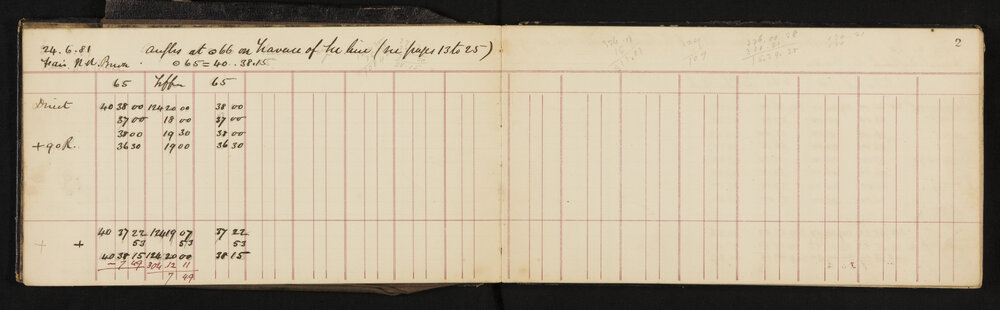 2
24.6.81 angles at ⊙66 on Traverse of the line (see pages 13 to 25)
⊙ 65 = 40 . 38.15
65 65
Direct 40 38 00 124 20 00 38 00
37 00 18 00 37 00
38 00 19 30 38 00
+90 R. 36 30 19 00 36 30
40 37 22 124 19 07 37 22
+ + 53 53 53
40 38 15 124 20 00 38 15
- 7 49 304 12 11
7 49